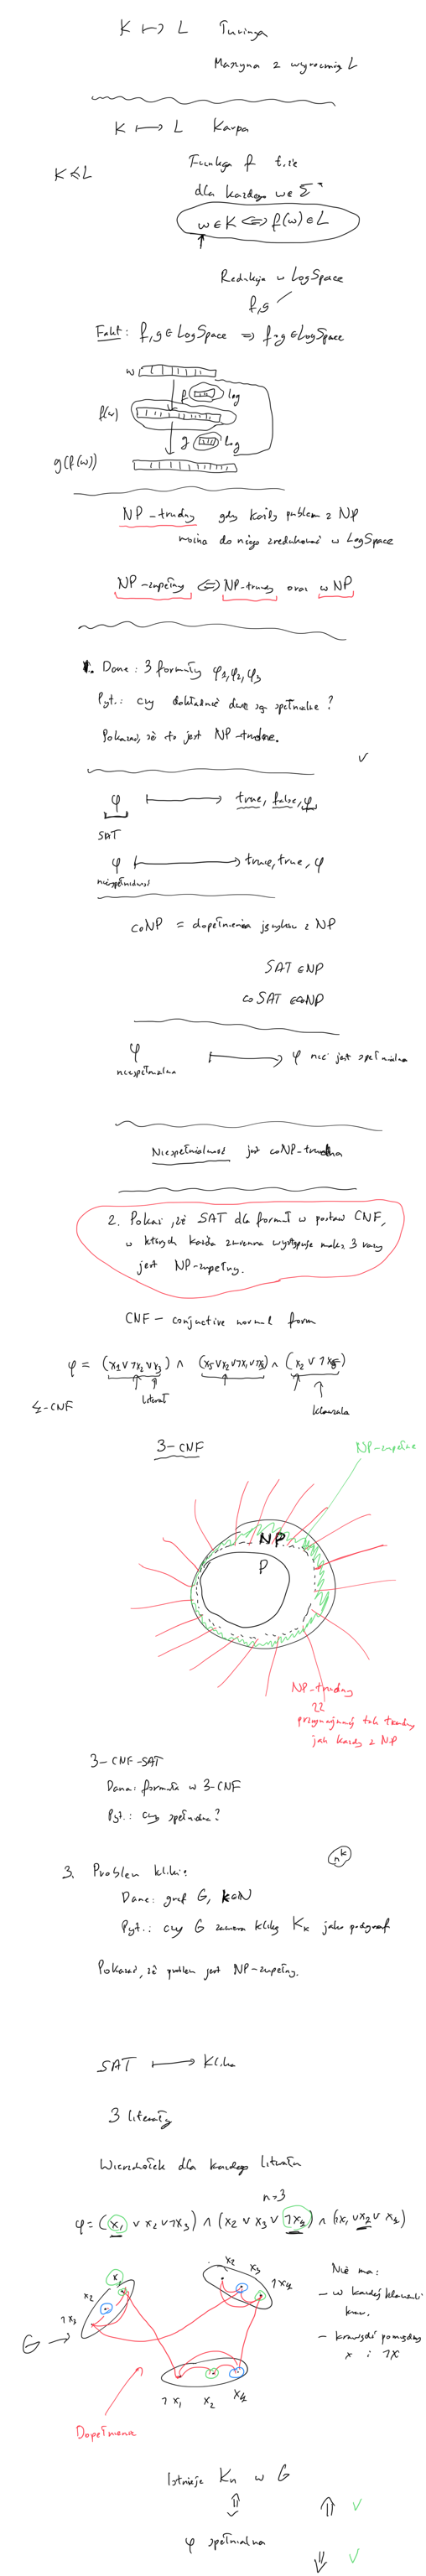 K ↦ L Turinga
Maszyna z wyrocznią L
K ↦ L Karpa
K ≤ L
Funkcja f t.że
dla każdego w∈Σ*
w∈K ⟺ f(w)∈L
Redukcja w LogSpace
f,g
Fakt: f,g∈LogSpace ⟹ f∘g∈LogSpace
w
f log
f(w)
g log
g(f(w))
NP-trudny gdy każdy problem z NP
można do niego zredukować w LogSpace
NP-zupełny ⟺ NP-trudny oraz w NP
1. Dane: 3 formuły φ1,φ2,φ3
Pyt.: czy dokładnie dwie są spełnialne?
Pokazać, że to jest NP-trudne.
φ ↦ true, false, φ
SAT
φ ↦ true, true, φ
niespełnialność
coNP = dopełnienia języków z NP
SAT ∈NP
coSAT ∈coNP
φ ↦ φ nie jest spełnialna
niespełnialna
Niespełnialność jest coNP-trudna
2. Pokaż, że SAT dla formuł w postaci CNF,
w których każda zmienna występuje maks. 3 razy
jest NP-zupełny.
CNF - conjuctive normal form
φ = (x1∨¬x2∨x3) ∧ (x5∨x2∨¬x1∨¬x3) ∧ (x2∨¬x5)
literał
4-CNF
klauzula
3-CNF
NP-zupełne
NP
P
NP-trudny
przynajmniej tak trudny
jak każdy z NP
3-CNF-SAT
Dana: formuła w 3-CNF
Pyt.: czy spełnialna?
n^k
3. Problem kliki:
Dane: graf G, k∈N
Pyt.: czy G zawiera klikę Kk jako podgraf
Pokazać, że problem jest NP-zupełny.
SAT ↦ Klika
3 literały
Wierzchołek dla każdego literału
n=3
φ = (x1 ∨ x2 ∨ ¬x3) ∧ (x2 ∨ x3 ∨ ¬x4) ∧ (¬x1 ∨ x2 ∨ x4)
x1
x2
¬x3
x2
x3
¬x4
Nie ma:
- w każdej klauzuli
kraw.
- krawędzi pomiędzy
x i ¬x
G →
¬x1 x2 x4
Dopełnienie
Istnieje Kn w G
⇕ ⇑ ✓
φ spełnialna
⇓ ✓